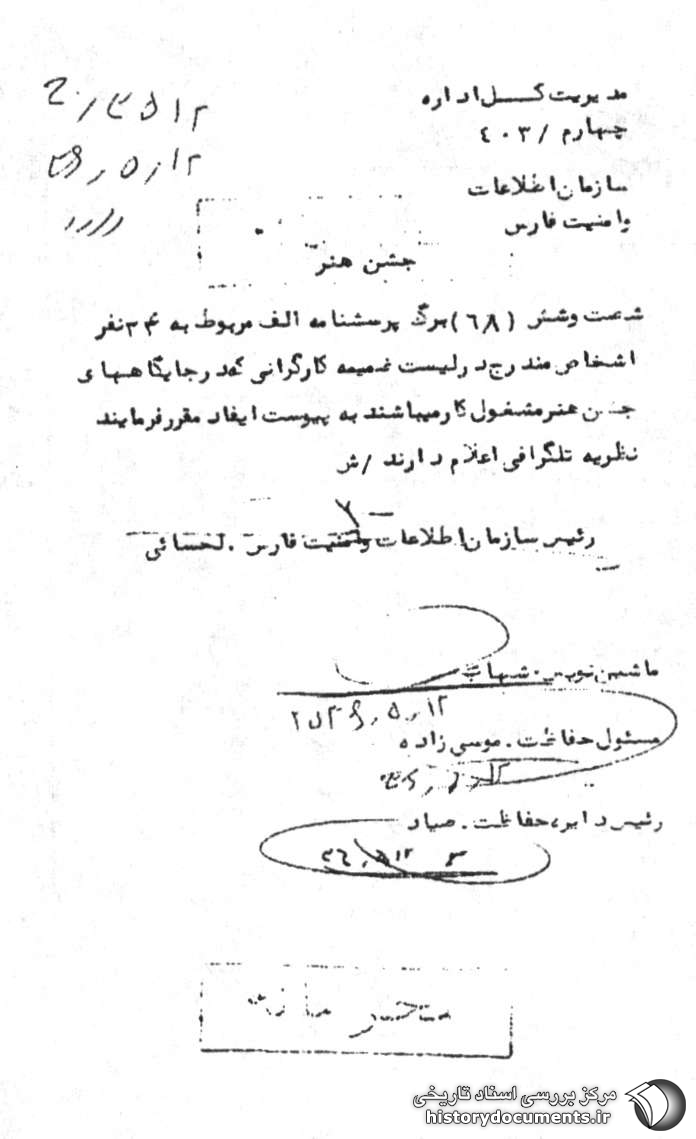 مدیریت کل اداره
چهارم / ۴۰۳
سازمان اطلاعات
وامنیت فارس
جشن هنر
شصت وشش (۶۸) برگ پرسشنامه الف مربوط به ۳۴ نفر
اشخاص مندرج در لیست ضمیمه کارگرانی که در جایگاههای
جشن هنر مشغول کار میباشند به پیوست ایفاد مقرر فرمایند
نظریه تلگرافی اعلام دارند /ش
رئیس سازمان اطلاعات وامنیت فارس . لحسائی
ماشین نویس . شهاب
۳۶٫۵٫۱۲
مسئول حفاظت . موسی زاده
رئیس دایره حفاظت . صیاد
۳۶٫۵٫۱۲
خیلی محرمانه
مرکز بررسی اسناد تاریخی
historydocuments.ir